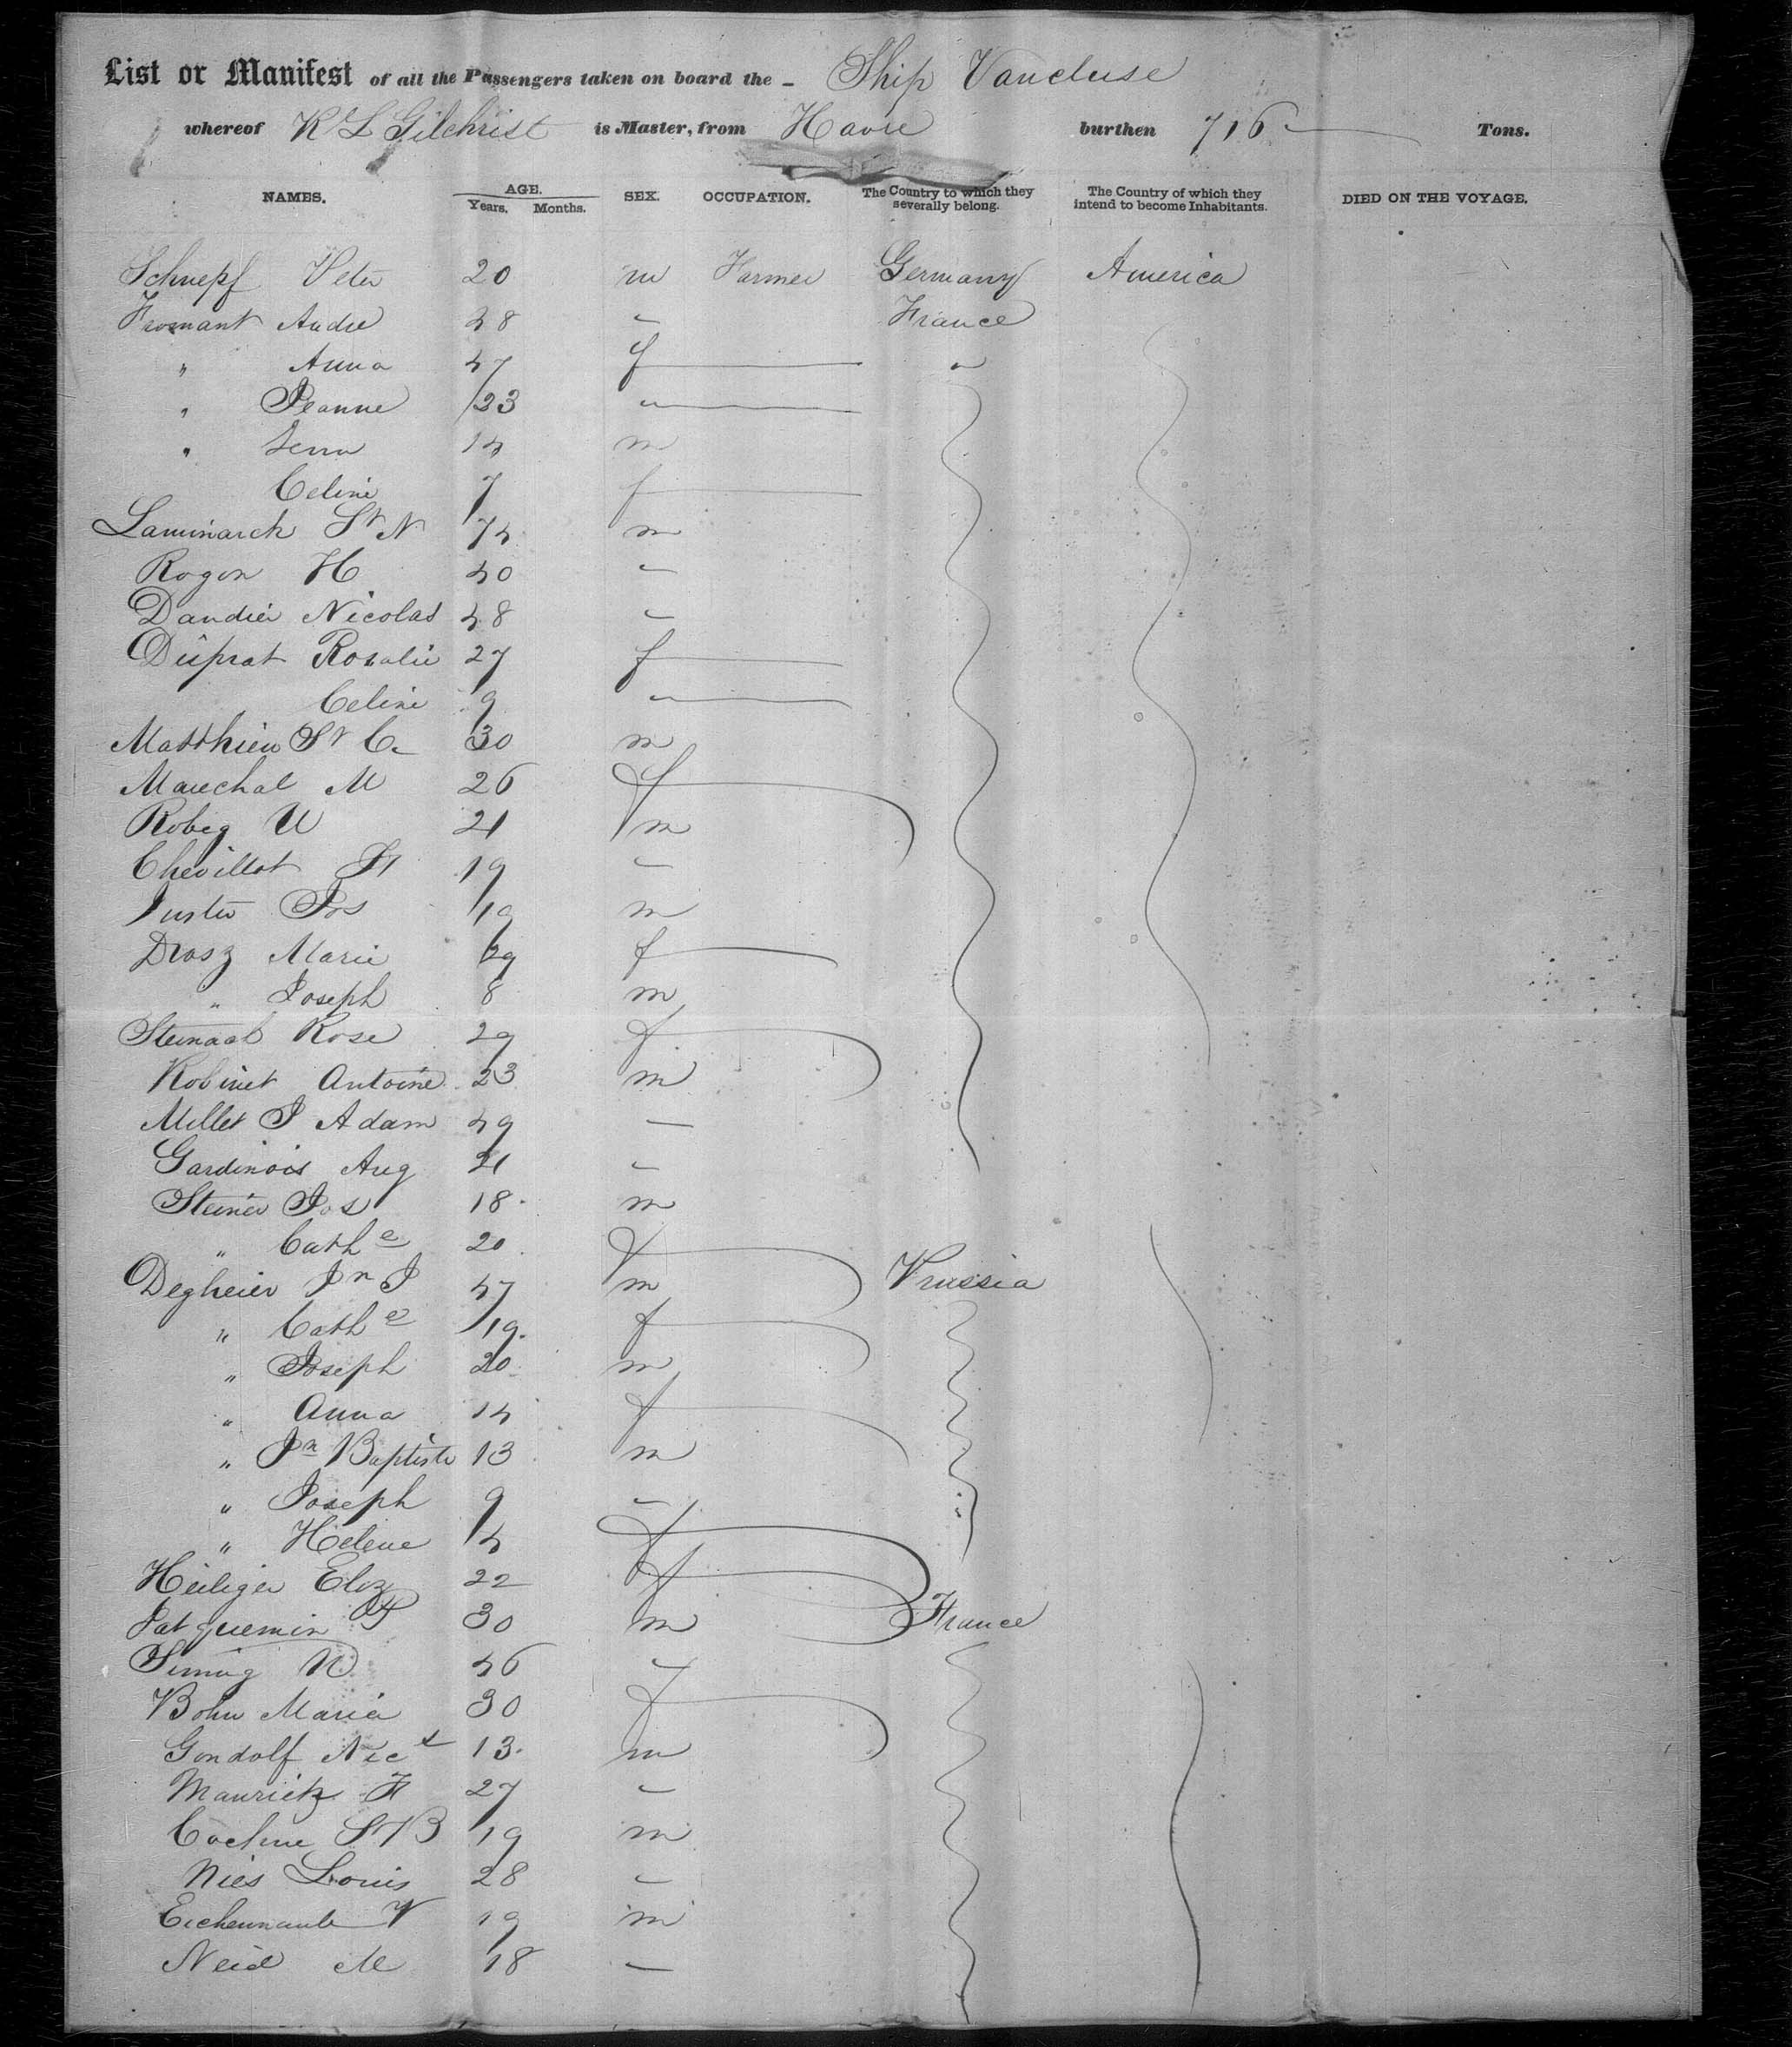 List or Manifest of all the Passengers taken on board the - Ship Vancluse
whereof R L Gilchrist is Master, from Havre burthen 716 Tons.
NAMES. AGE. Years. Months. SEX. OCCUPATION. The Country to which they severally belong. The Country of which they intend to become Inhabitants. DIED ON THE VOYAGE.
Schnepf Peter 20 m Farmer Germany America
Fromant Andre 48 " France
" Anna 47 f "
" Jeanne 23 "
" 14 m
Celine 7 f
Laminarch St N 74 m
Rogon H 40 "
Dandier Nicolas 48 "
Duprat Rosalie 27 f
Celine 9 "
Matthieu St C. 30 m
Marechal M 26 f
Robeg U 21 m
Chevillot Ft 19 "
Juster Jos 19 m
Drosz Marie 29 f
" Joseph 8 m
Rose 29 f
Robinet Antoine 23 m
Millet J Adam 49 "
Gardinois Aug 21 "
Steiner Jos 18 m
" Cathe 20 f
Degheier Jn J 47 m Prussia
" Cathe 19 f
" Joseph 20 m
" Anna 14 f
" Jn Baptiste 13 m
" Joseph 9 "
" Helene 4 f
Heiliger Eliz 22 f
Patguemin P 30 m France
N 46 "
Bohn Maria 30 f
Gondolf Nics 13 m
Maurick F 27 "
19 m
Nies Louis 28 "
V 19 m
Neid M 18 "